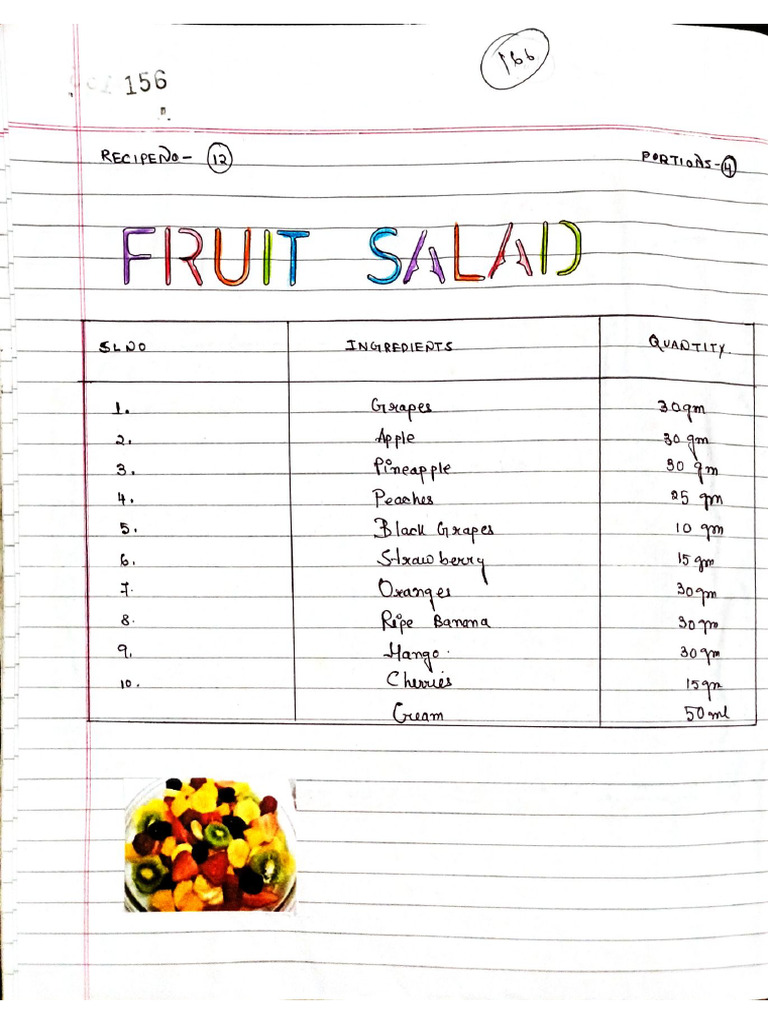 166
156
RECIPENO- 12 PORTIONS-4
FRUIT SALAD
SLNO INGREDIENTS QUANTITY
1. Grapes 30gm
2. Apple 30 gm
3. Pineapple 30 gm
4. Peaches 25 gm
5. Black Grapes 10 gm
6. Strawberry 15 gm
7. Oranges 30gm
8. Ripe Banana 30gm
9. Mango. 30gm
10. Cherries 15gm
Cream 50ml